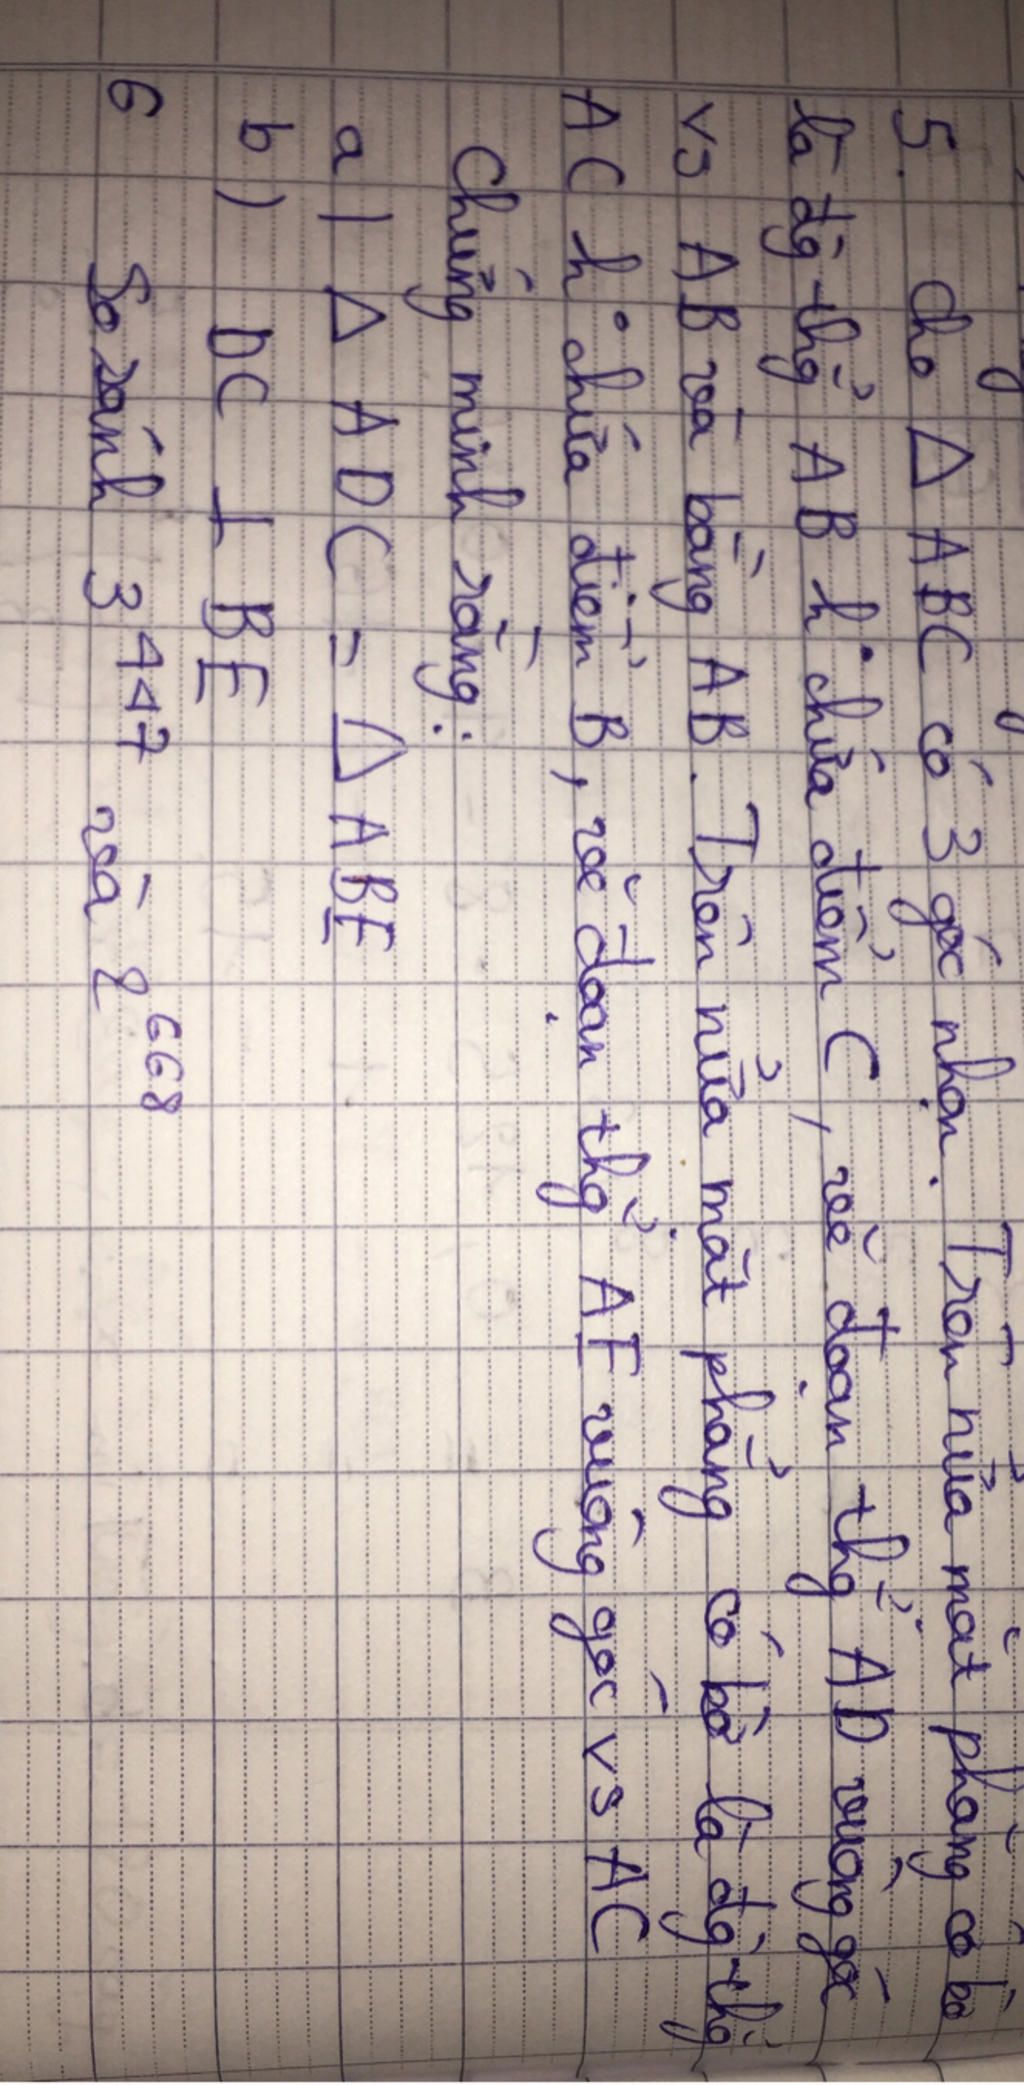 5. Cho △ ABC có 3 góc nhọn. Trên nửa mặt phẳng có bờ
là đg thg̉ AB k chứa điểm C, vẽ đoạn thg̉ AD vuông góc
vs AB và bằng AB. Trên nửa mặt phẳng có bờ là đg thg̉
AC k chứa điểm B, vẽ đoạn thg̉ AE vuông góc vs AC
Chứng minh rằng:
a) △ ADC = △ ABE
b) DC ⊥ BE
6 So sánh 3^447 và 8^668